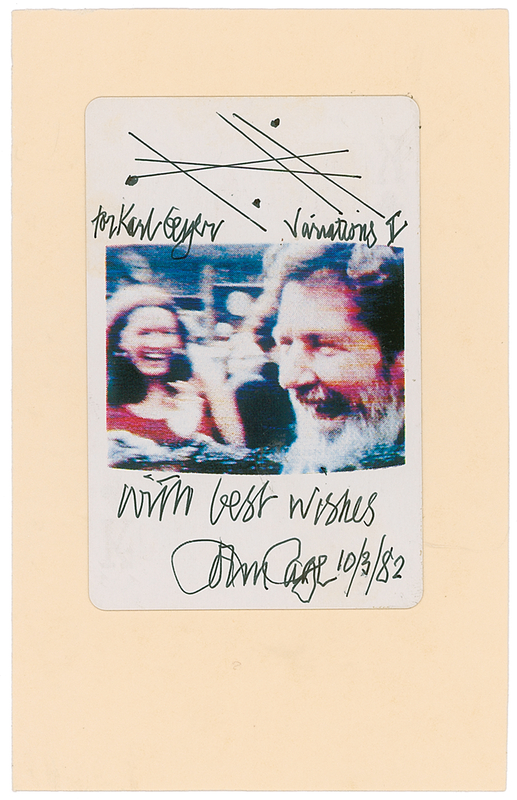 for Karl Geyer
Variations I
with best wishes
John Cage 10/3/82